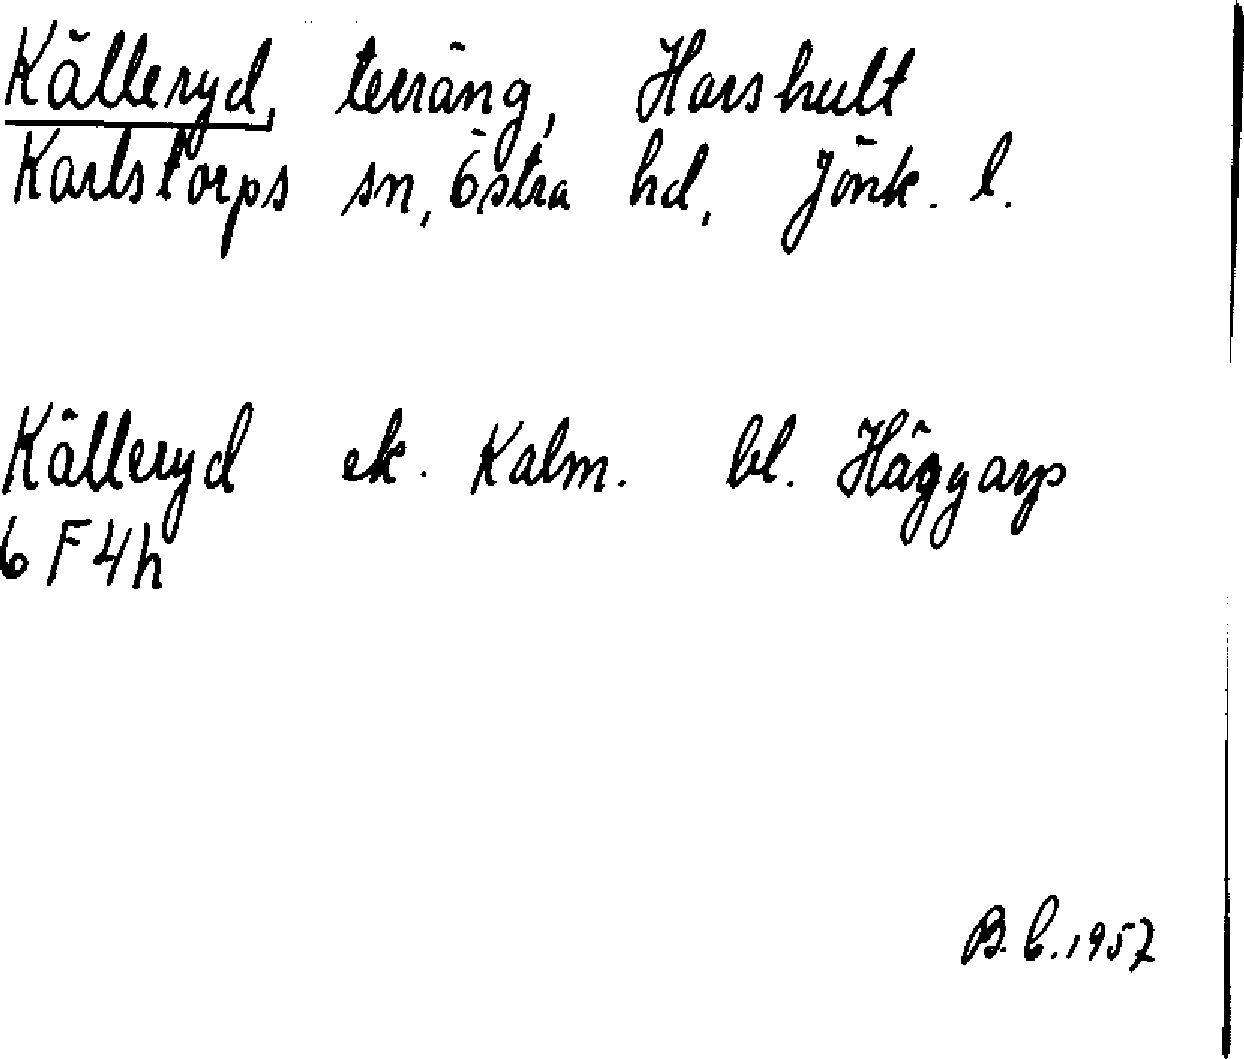 Källeryd, terräng, Harshult
Karlstorps sn, Östra hd, Jönk. l.
Källeryd ek. Kalm. bl. Häggarp
6 F 4 h
B. C. 1957